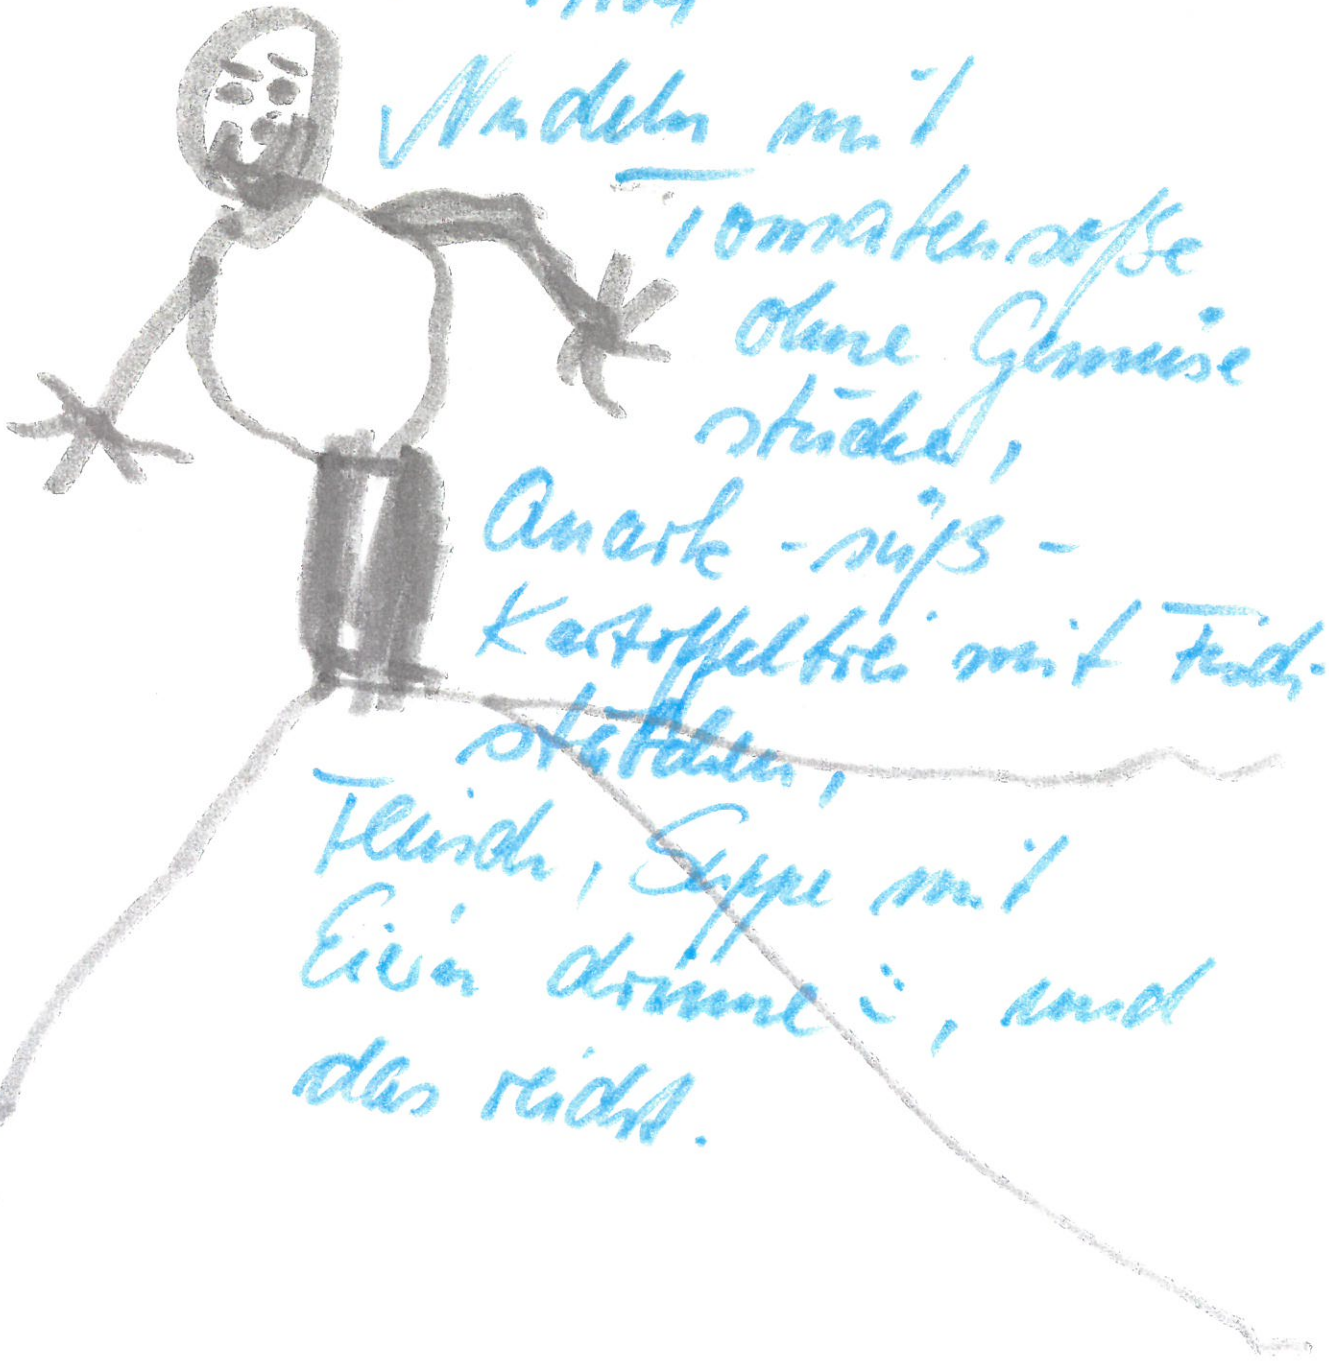 Nudeln mit
Tomatensoße
ohne Gemüse
stücke,
Quark - süß -
Kartoffelbrei mit Fisch-
stäbchen,
Fleisch, Suppe mit
Eiern drinne, und
das reicht.